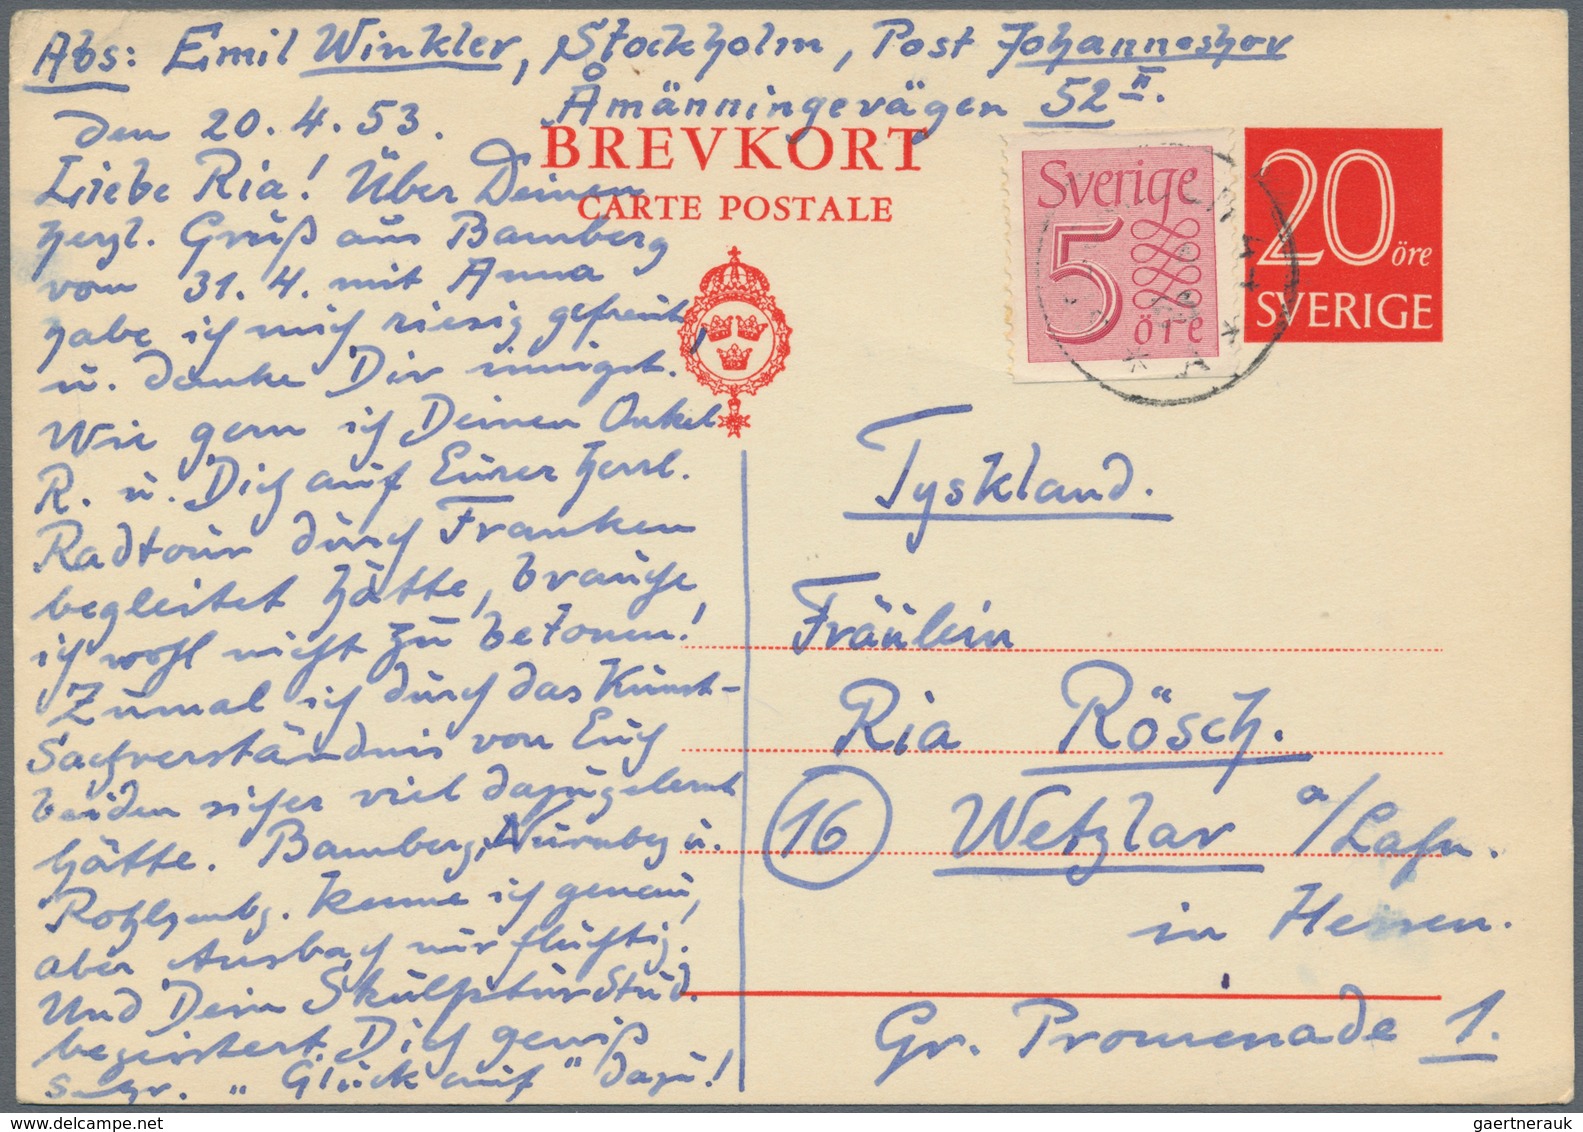 Abs: Emil Winkler, Stockholm, Post Johanneshov
Åmänningevägen 52 II.
den 20.4.53.
BREVKORT
CARTE POSTALE
Sverige
5
öre
20 öre
SVERIGE
Liebe Ria! Über Deinen
herzl. Gruß aus Bamberg
vom 31.4. mit Anna
habe ich mich riesig gefreut,
u. danke Dir innigst.
Wie gern ich Deinen Onkel
R. u. Dich auf Eurer herrl.
Radtour durch Franken
begleitet hätte, brauche
ich wohl nicht zu betonen!
Zumal ich durch das Kunst-
Sachverständnis von Euch
beiden sicher viel dazugelernt
hätte. Bamberg, Nürnbg u.
Rothenbg. kenne ich genau,
aber Ansbach nur flüchtig.
Und Dein Skulpturstud.
begeistert Dich gewiß
sehr. "Glück auf" dazu!
Tyskland.
Fräulein
Ria Rösch.
16 Wetzlar a/Lahn.
in Hessen.
Gr. Promenade 1.
gaertnerauk @ delcampe.net